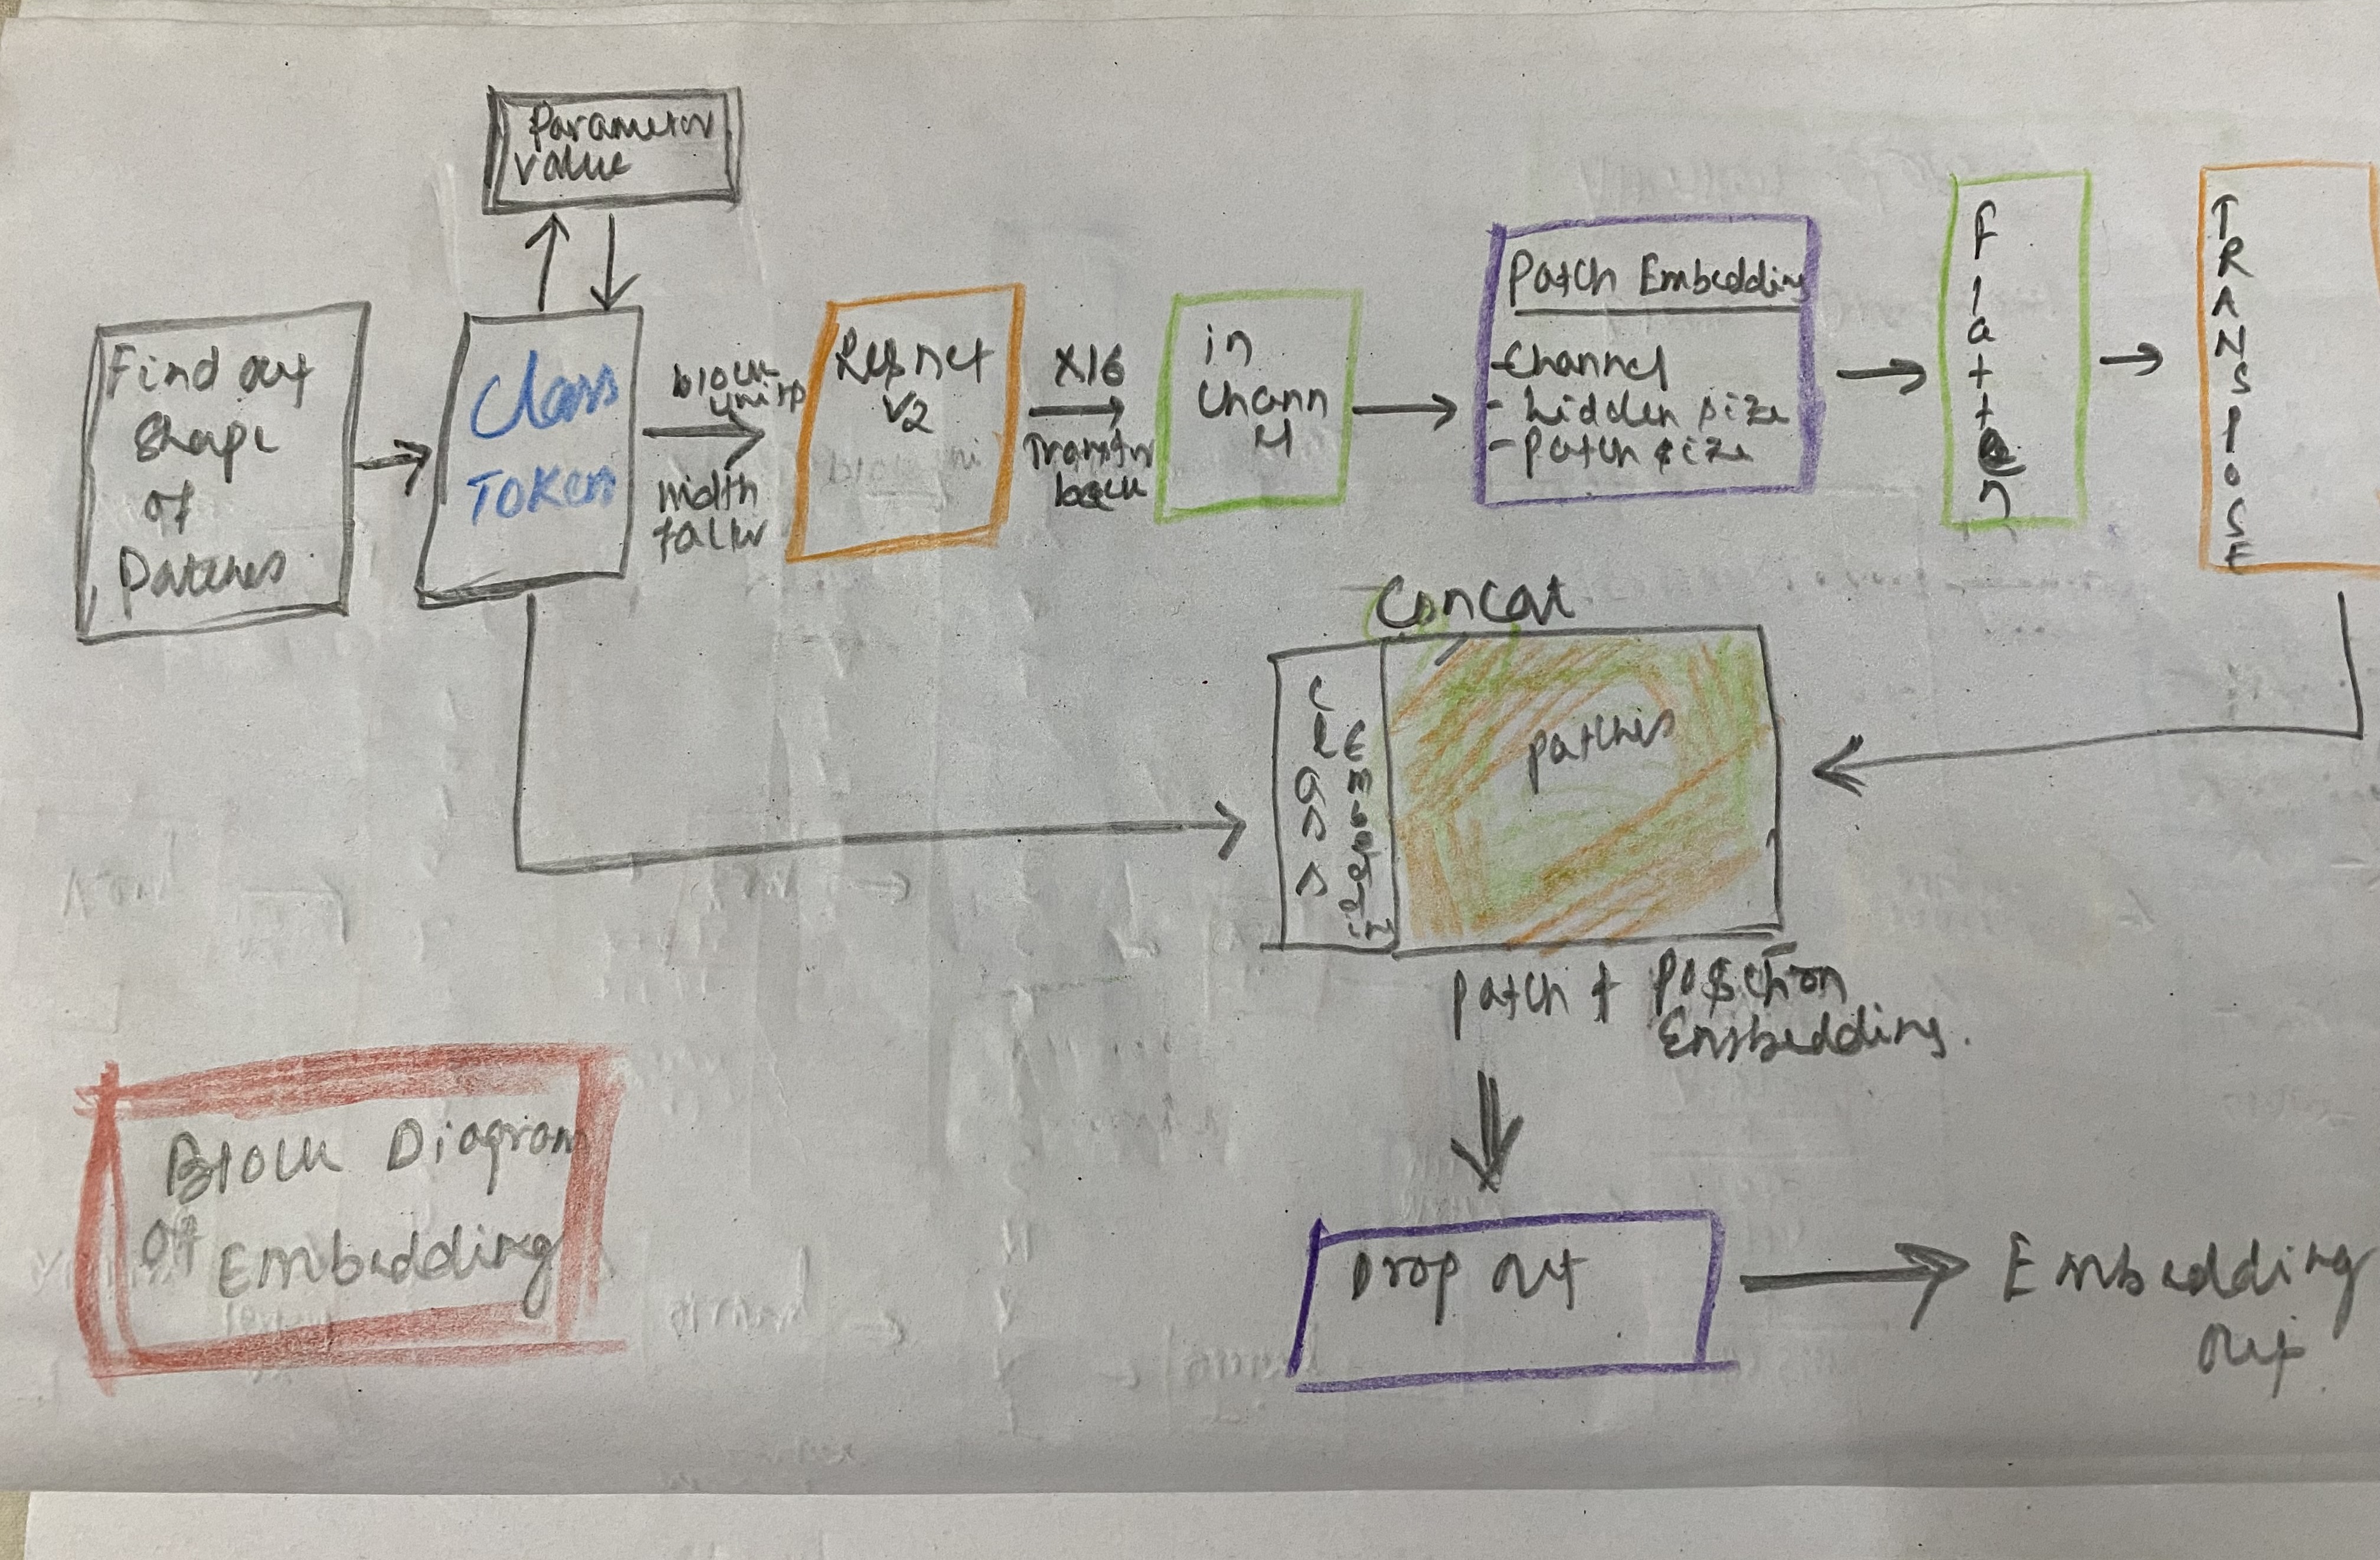 Parameter
value
Find out
Shape
of
Patches
Class
Token
block
units
width
Resnet
V2
X16
in
Chann
el
Patch Embedding
- Channel
- hidden size
- patch size
Flatten
TRANSPOSE
Concat
Class
Embedding
patches
patch + Position
Embedding.
Block Diagram
Of
Embedding
Drop out
Embedding
out